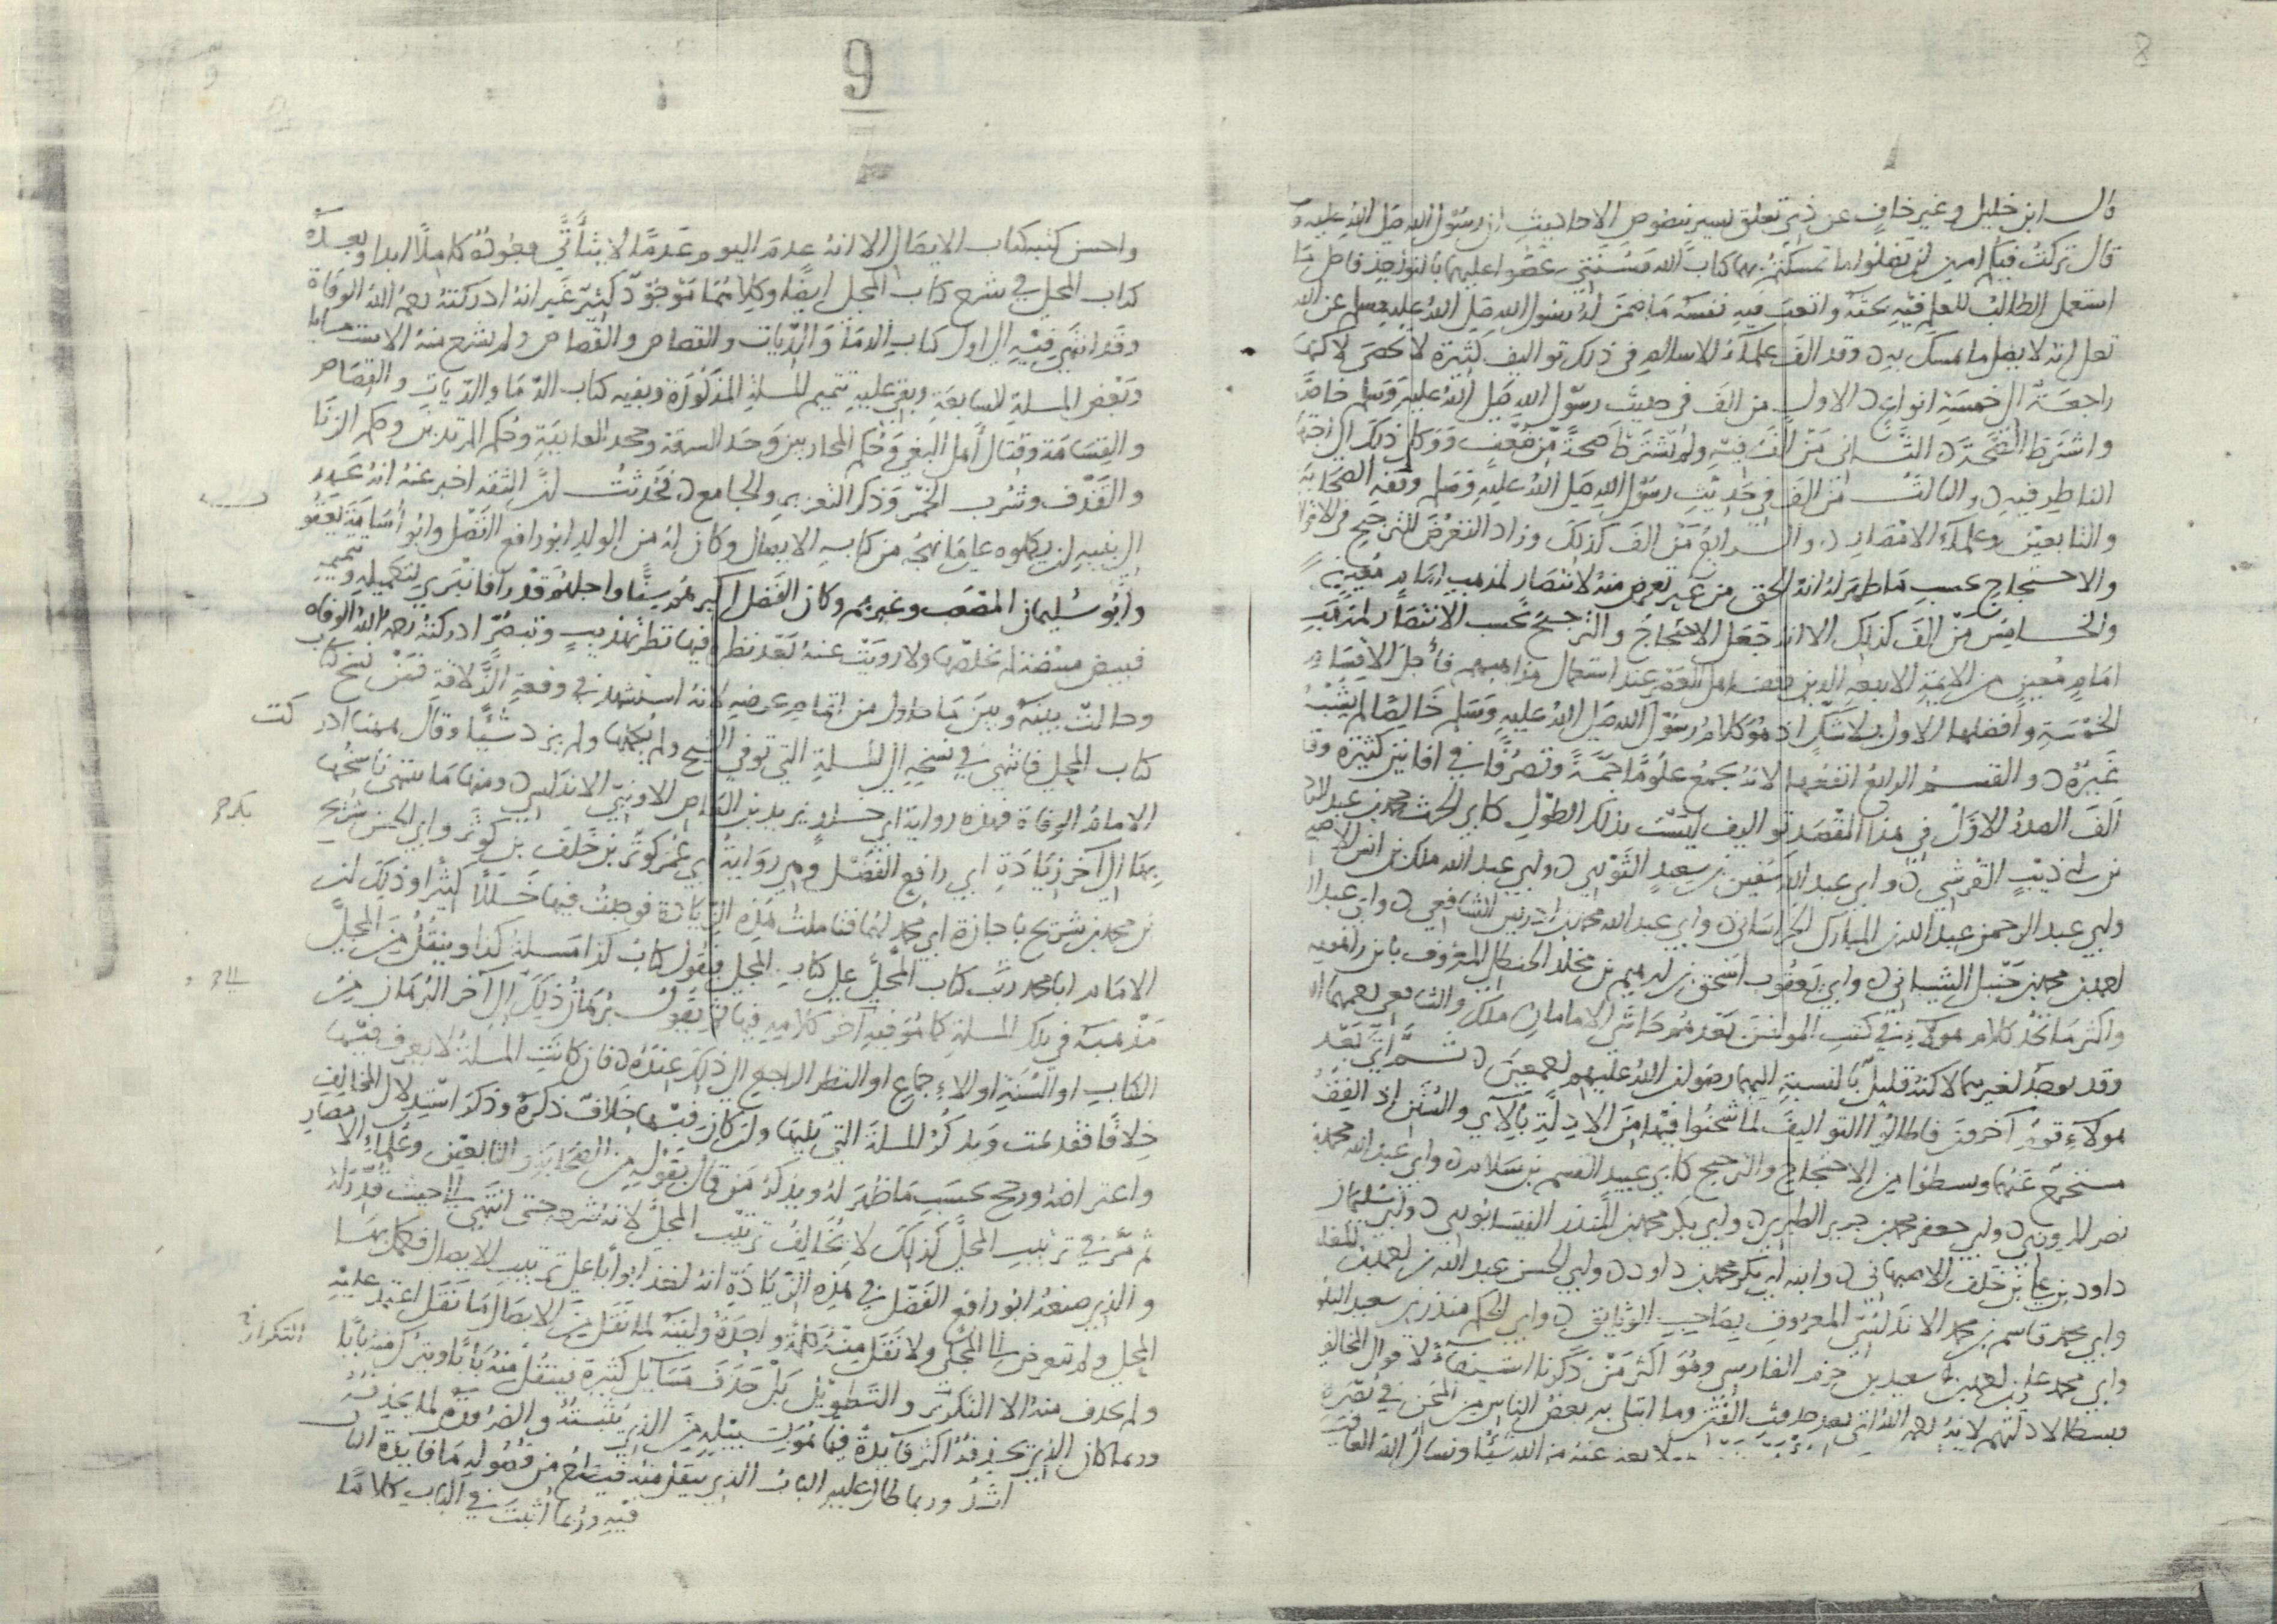 8
قال ابن خليل وغير خاف عن ذي تعلق يسير بنصوص الاحاديث ان رسول الله صلى الله عليه و
قال تركت فيكم امرين لن تضلوا ما تمسكتم بهما كتاب الله وسنتي عضوا عليهما بالنواجذ فافضل ما
استعمل الطالب للعلم فيه بحثه واتعب فيه نفسه ما ضمن له رسول الله صلى الله عليه وسلم عن الله
تعلى انه لا يضل ما تمسك به وقد الف علماء الاسلام في ذلك تواليف كثيرة لا تحصى لاكنها
راجعة الى خمسة انواع الاول من الف في حديث رسول الله صلى الله عليه وسلم خاصة
واشترط الصحة الثاني من الف فيه ولم يشترط صحة من ضعف ووكل ذلك الى اجتهاد
الناظر فيه والثالث من الف في حديث رسول الله صلى الله عليه وسلم وفقه الصحابة
والتابعين وعلماء الامصار والرابع من الف كذلك وزاد التعرض للترجيح في الاقوال
والاحتجاج بحسب ما ظهر له انه الحق من غير تعرض منه لانتصار لمذهب امام معين
والخامس من الف كذلك الا انه جعل الاحتجاج والترجيح بحسب الانتصار لمذهب
امام معين من الايمة الاربعة الذين وقف اهل العصر عند استعمال مذاهبهم فاجل الاقسام
الخمسة وافضلها الاول بلا شك اذ هو كلام رسول الله صلى الله عليه وسلم خالصا لم يشبه
غيره والقسم الرابع انفعها لانه يجمع علوما جمة وتصرفا في افانين كثيرة وقد
الف الصدر الاول في هذا المقصد تواليف ليست بذلك الطول كابي الحرث محمد بن عبد الرحمن
بن ابي ذيب القرشي وابي عبد الله سفين بن سعيد الثوري وابي عبد الله ملك بن انس الاصبحي
وابي عبد الرحمن عبد الله بن المبارك الخراساني وابي عبد الله محمد بن ادريس الشافعي وابي عبد الله
احمد بن محمد بن حنبل الشيباني وابي يعقوب اسحق بن ابرهيم بن مخلد الحنظلي المعروف بابن راهويه
واكثر ما تجد كلام هولاء في كتب المولفين بعدهم حاشى الامامان ملك والشافعي رحمهما الله
وقد يوجد لغيرهما لاكنه قليل بالنسبة اليهما رضوان الله عليهم اجمعين ثم اتى بعد
هولاء قوم اخرون فاطالوا التواليف لما شحنوا فيها من الادلة بالآي والسنن اذ الفقه
مستخرج عنهما وبسطوا من الاحتجاج والترجيح كابي عبيد القسم بن سلام وابي عبد الله محمد بن
نصر المروزي وابي جعفر محمد بن جرير الطبري وابي بكر محمد بن المنذر النيسابوري وابي سليمان
داود بن علي بن خلف الاصبهاني وابنه ابي بكر محمد بن داود وابي الحسن عبد الله بن احمد بن المغلس
وابي محمد قاسم بن محمد الاندلسي المعروف بصاحب الوثايق وابي الحكم منذر بن سعيد البلوطي
وابي محمد علي بن احمد بن سعيد بن حزم الفارسي وهو اكثر من ذكرنا استيعابا لاقوال المخالفين
وبسطا لادلتهم لانه رحمه الله اتى بعد حدوث الفتن وما ابتلي به بعض الناس من المحن في نصرة
لا يعد عنه من الله شيئا ونسال الله العافية
9
واحسن كتبه كتاب الايصال الا انه عدم اليوم عدما لا يتأتى وجوده كاملا ابدا وبعده
كتاب المحلى في شرح كتاب المجلى ايضا وكلاهما موجود كثير غير انه ادركته رحمه الله الوفاة
وقد انتهى فيه الى اول كتاب الدماء والديات والقصاص ولم يشرح منه الا ست مسايل
وبعض المسلة السابعة وبقي عليه تتميم المسلة المذكورة وبقية كتاب الدما والديات والقصاص
والقسامة وقتال اهل البغي وحكم المحاربين وحد السرقة وجحد العارية وحكم المرتدين وحكم الزنا
والقذف وشرب الخمر وذكر التعزير والجامع فحدثت ان الثقة اخبر عنه انه عهد
الى بنيه ان يكملوه على ما نهجه من كتابه الايصال وكان له من الولد ابو رافع الفضل وابو اسامة يعقوب
وابو سليمان المصعب وغيرهم وكان الفضل اكبرهم سنا واجلهم قدرا فانبرى لتكميله وتتميمه
فبيض مبيضة لم يخلصها ولا رويت عنه بعد نظره فيها نظر تهذيب وتبصر ادركته رحمه الله الوفاة
وحالت بينه وبين ما حاول من اتمام غرضه لانه استشهد في وقعة الزلاقة فمن نسخ كتاب
كتاب المجلى فانتهى في نسخه الى المسلة التي توفي الشيخ ولم يكملها ولم يزد شيئا وقال هاهنا ادركت
الامام الوفاة فهذه رواية ابي خالد يزيد بن العاص الاونبي الاندلسي ومنها ما ينتهي ناسخها
بها الى اخر زيادة ابي رافع الفضل وهي رواية ابي عمر كوثر بن خلف بن كوثر وابي الحسن شريح
بن محمد بن شريح باجازة ابي محمد لهما فتاملت هذه الزيادة فوجدت فيها خللا كثيرا وذلك ان
الامام ابا محمد رتب كتاب المحلى على كتاب المجلى فيقول كتاب كذا مسلة كذا وينقل من المجلى
مذهبه في تلك المسلة كما هو فيه اخر كلامه فيها ثم يقول برهان ذلك الى آخر البرهان من
الكتاب او السنة او الاجماع او النظر الراجع الى ذلك عنده فان كانت المسلة لا يعرف فيها
خلافا فقد تمت ويذكر المسلة التي تليها وان كان فيها خلاف ذكره وذكر استدلال المخالف
واعتراضه ورجح بحسب ما ظهر له ويذكر من قال بقوله من الصحابة والتابعين وعلماء الامصار
ثم مر في ترتيب المحلى كذلك لا يخالف ترتيب المجلى لانه شرحه حتى انتهى الى حيث قدر له
والذي صنعه ابو رافع الفضل في هذه الزيادة انه اخذ ابوابا على ترتيب الايصال فكمل بها
المحلى ولم يتعرض الى المجلى ولا نقل منه كلمة واحدة وليته لما نقل من الايصال ما نقل اعتمد عليه
ولم يحذف منه الا التكرير والتطويل بل حذف مسايل كثيرة فينقل منه بابا ويترك منه بابا
وربما كان الذي يحذفه اكثر فايدة فيما هو بسبيله من الذي يثبته والضرورة لما يحذفه
اشد وربما طال عليه الباب الذي ينقل منه فيقطع من فصوله ما فايدة الباب
فيه وربما اثبت في الباب كلاما